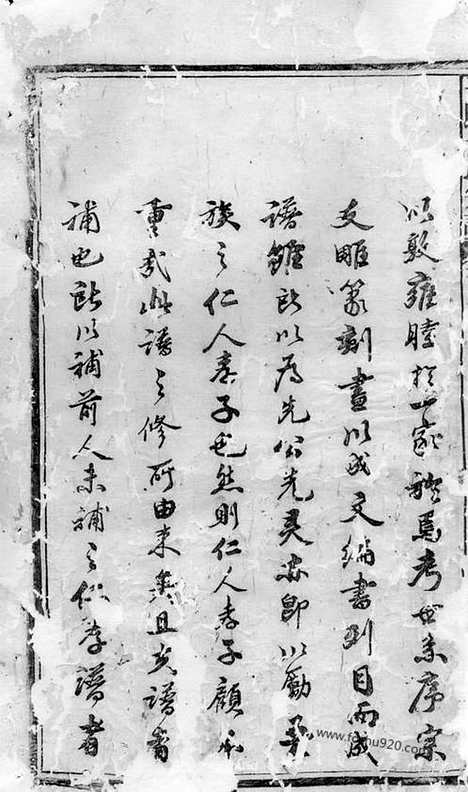 以敦雍睦於一家族焉考世系序宗
支雕篆剞畫以成文編書列目而成
譜雖所以為先公光美亦即以勵吾
族之仁人孝子也然則仁人孝子顧不
重哉此譜之修所由來矣且夫譜者
補也所以補前人未補之仁孝譜者
www.fozhu920.com